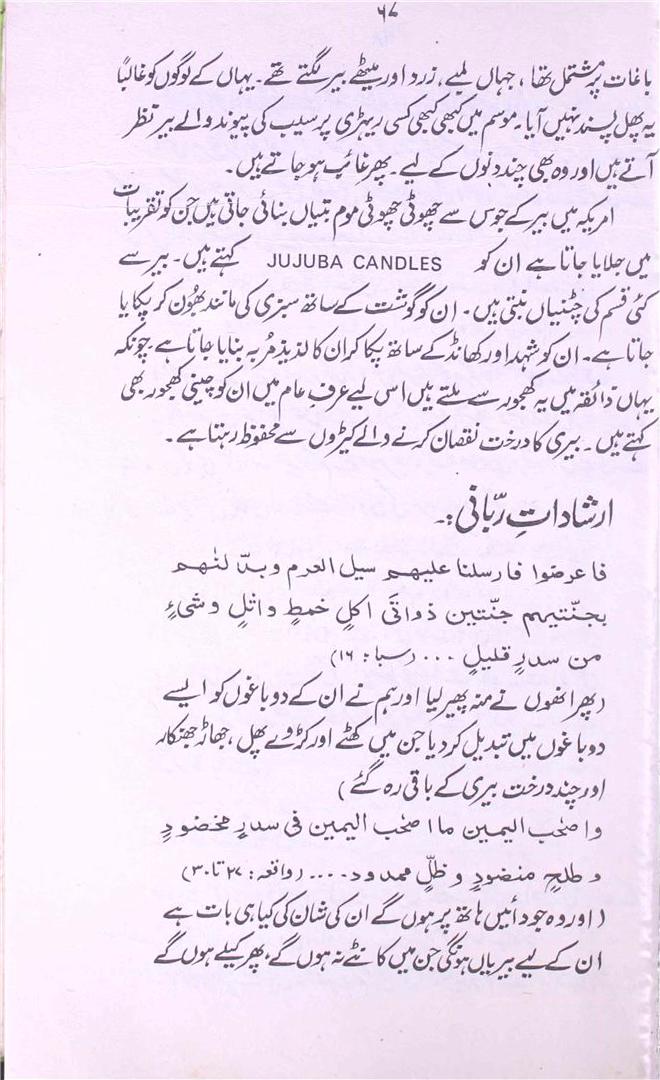 ۶۷
باغات پر مشتمل تھا ، جہاں لمبے، زرد اور میٹھے بیر لگتے تھے۔ یہاں کے لوگوں کو غالباً
یہ پھل پسند نہیں آیا۔ موسم میں کبھی کبھی کسی ریہڑی پر سیب کی پیوند والے بیر نظر
آتے ہیں اور وہ بھی چند دنوں کے لیے ۔ پھر غائب ہو جاتے ہیں۔
امریکہ میں بیر کے جوس سے چھوٹی چھوٹی موم بتیاں بنائی جاتی ہیں جن کو تقریبات
میں جلایا جاتا ہے ان کو JUJUBA CANDLES کہتے ہیں۔ بیر سے
کئی قسم کی چٹنیاں بنتی ہیں۔ ان کو گوشت کے ساتھ سبزی کی مانند بھُون کر پکایا
جاتا ہے۔ ان کو شہد اور کھانڈ کے ساتھ پکا کر ان کا لذیذ مُربہ بنایا جاتا ہے۔ چونکہ
یہاں ذائقہ میں یہ کھجور سے ملتے ہیں اس لیے عرفِ عام میں ان کو چینی کھجور بھی
کہتے ہیں ۔ بیری کا درخت نقصان کرنے والے کیڑوں سے محفوظ رہتا ہے ۔
ارشاداتِ ربّانی :۔
فاعرضوا فارسلنا علیهم سیل العرم وبدّلنٰهم
بجنّتیهم جنّتین ذواتَی اکلٍ خمطٍ واثلٍ وشیءٍ
من سدرٍ قلیلٍ ... (سبا: ۱۶)
(پھر انھوں نے منہ پھیر لیا اور ہم نے ان کے دو باغوں کو ایسے
دو باغوں میں تبدیل کر دیا جن میں کھٹے اور کڑوے پھل ، جھاڑ جھنکار
اور چند درخت بیری کے باقی رہ گئے)
واصحٰب الیمین ما اصحٰب الیمین فی سدرٍ مخضودٍ
وطلحٍ منضودٍ وظلٍّ ممدود.... (واقعہ: ۲۷ تا ۳۰)
(اور وہ جو دائیں ہاتھ پر ہوں گے ان کی شان کی کیا ہی بات ہے
ان کے لیے بیریاں ہونگی جن میں کانٹے نہ ہوں گے، پھر کیلے ہوں گے